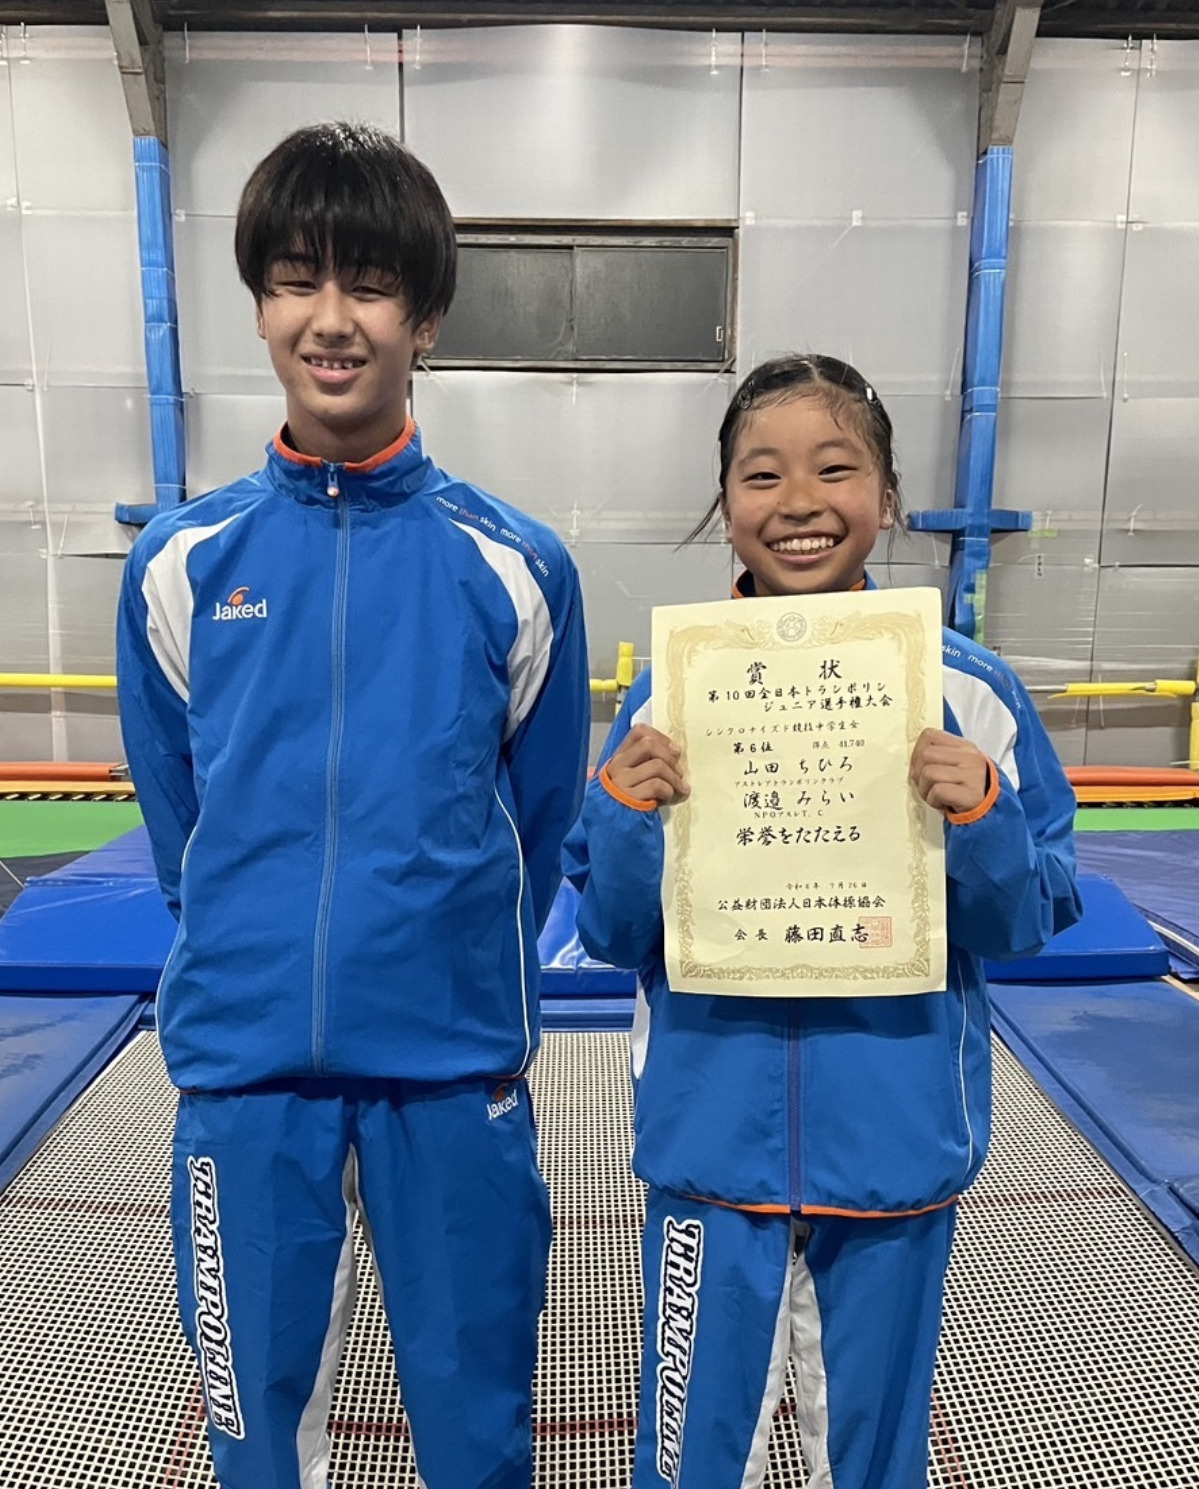 more than skin more than skin
Jaked
skin more
賞 状
第10回全日本トランポリン
ジュニア選手権大会
シンクロナイズド競技中学生女
第6位 得点 41.740
山田 ちひろ
アストレアトランポリンクラブ
渡邉 みらい
NPOアスレT.C
栄誉をたたえる
令和6年 7月26日
公益財団法人日本体操協会
会長 藤田直志
Jaked
TRAMPOLINE
TRAMPOLINE